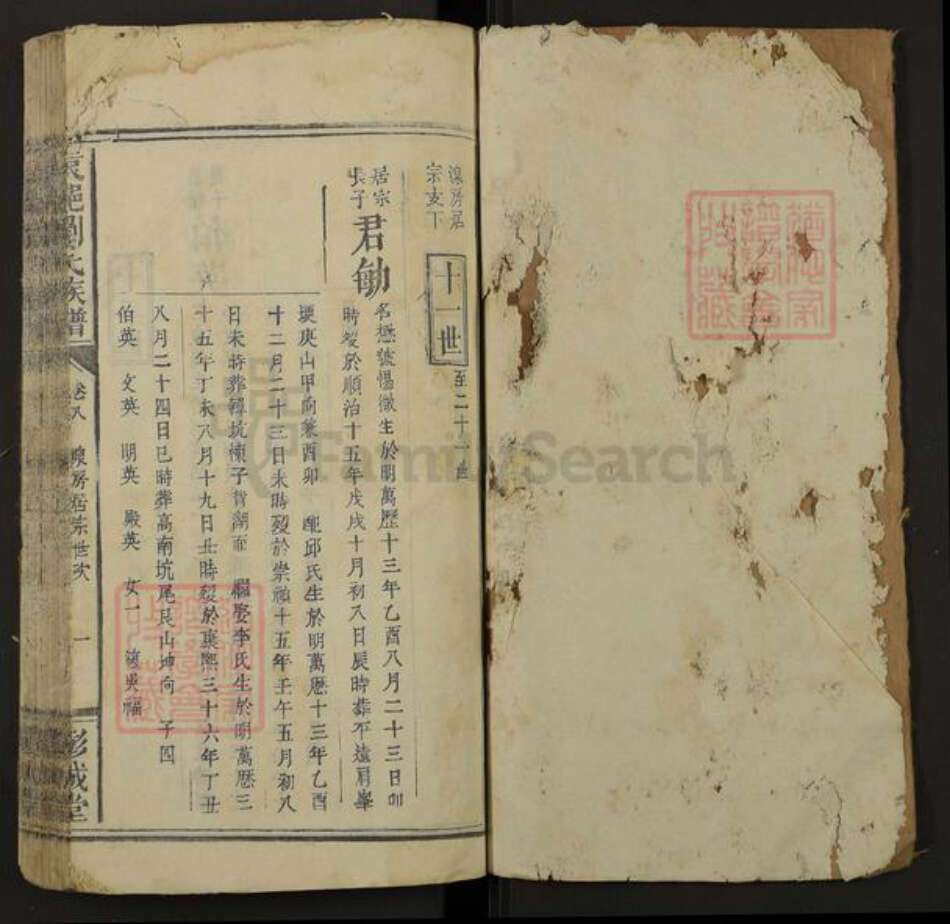 房居
宗支下
十一世
至二十世
居宗
長子
君敏
名懋號惕徵生於明萬歷十三年乙酉八月二十三日卯
時歿於順治十五年戊戌十月初八日辰時葬平遠眉峯
庚山甲向兼酉卯 配邱氏生於明萬歷十三年乙酉
十二月二十三日未時歿於崇禎十五年壬午五月初八
日未時葬 坑棟子 湖面 繼娶李氏生於明萬歷三
十五年丁未八月十九日丑時歿於康熙三十六年丁丑
八月二十四日巳時葬高南坑尾艮山坤向 子四
伯英 文英 明英 殿英 女一 適吳福
氏族譜
卷八
房居宗世次
一
彭城堂
FamilySearch